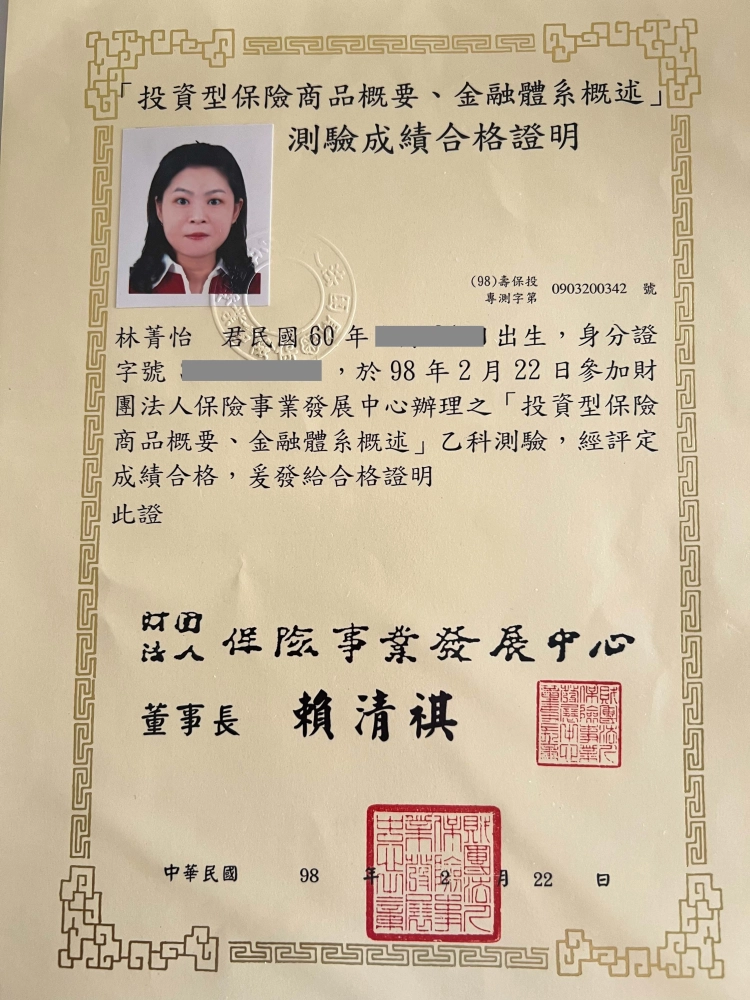 「投資型保險商品概要、金融體系概述」
測驗成績合格證明
(98)壽保投
專測字第 0903200342 號
林菁怡 君民國 60 年 出生，身分證
字號 ，於 98 年 2 月 22 日參加財
團法人保險事業發展中心辦理之「投資型保險
商品概要、金融體系概述」乙科測驗，經評定
成績合格，爰發給合格證明
此證
財團法人 保險事業發展中心
董事長 賴清祺
中華民國 98 年 2 月 22 日